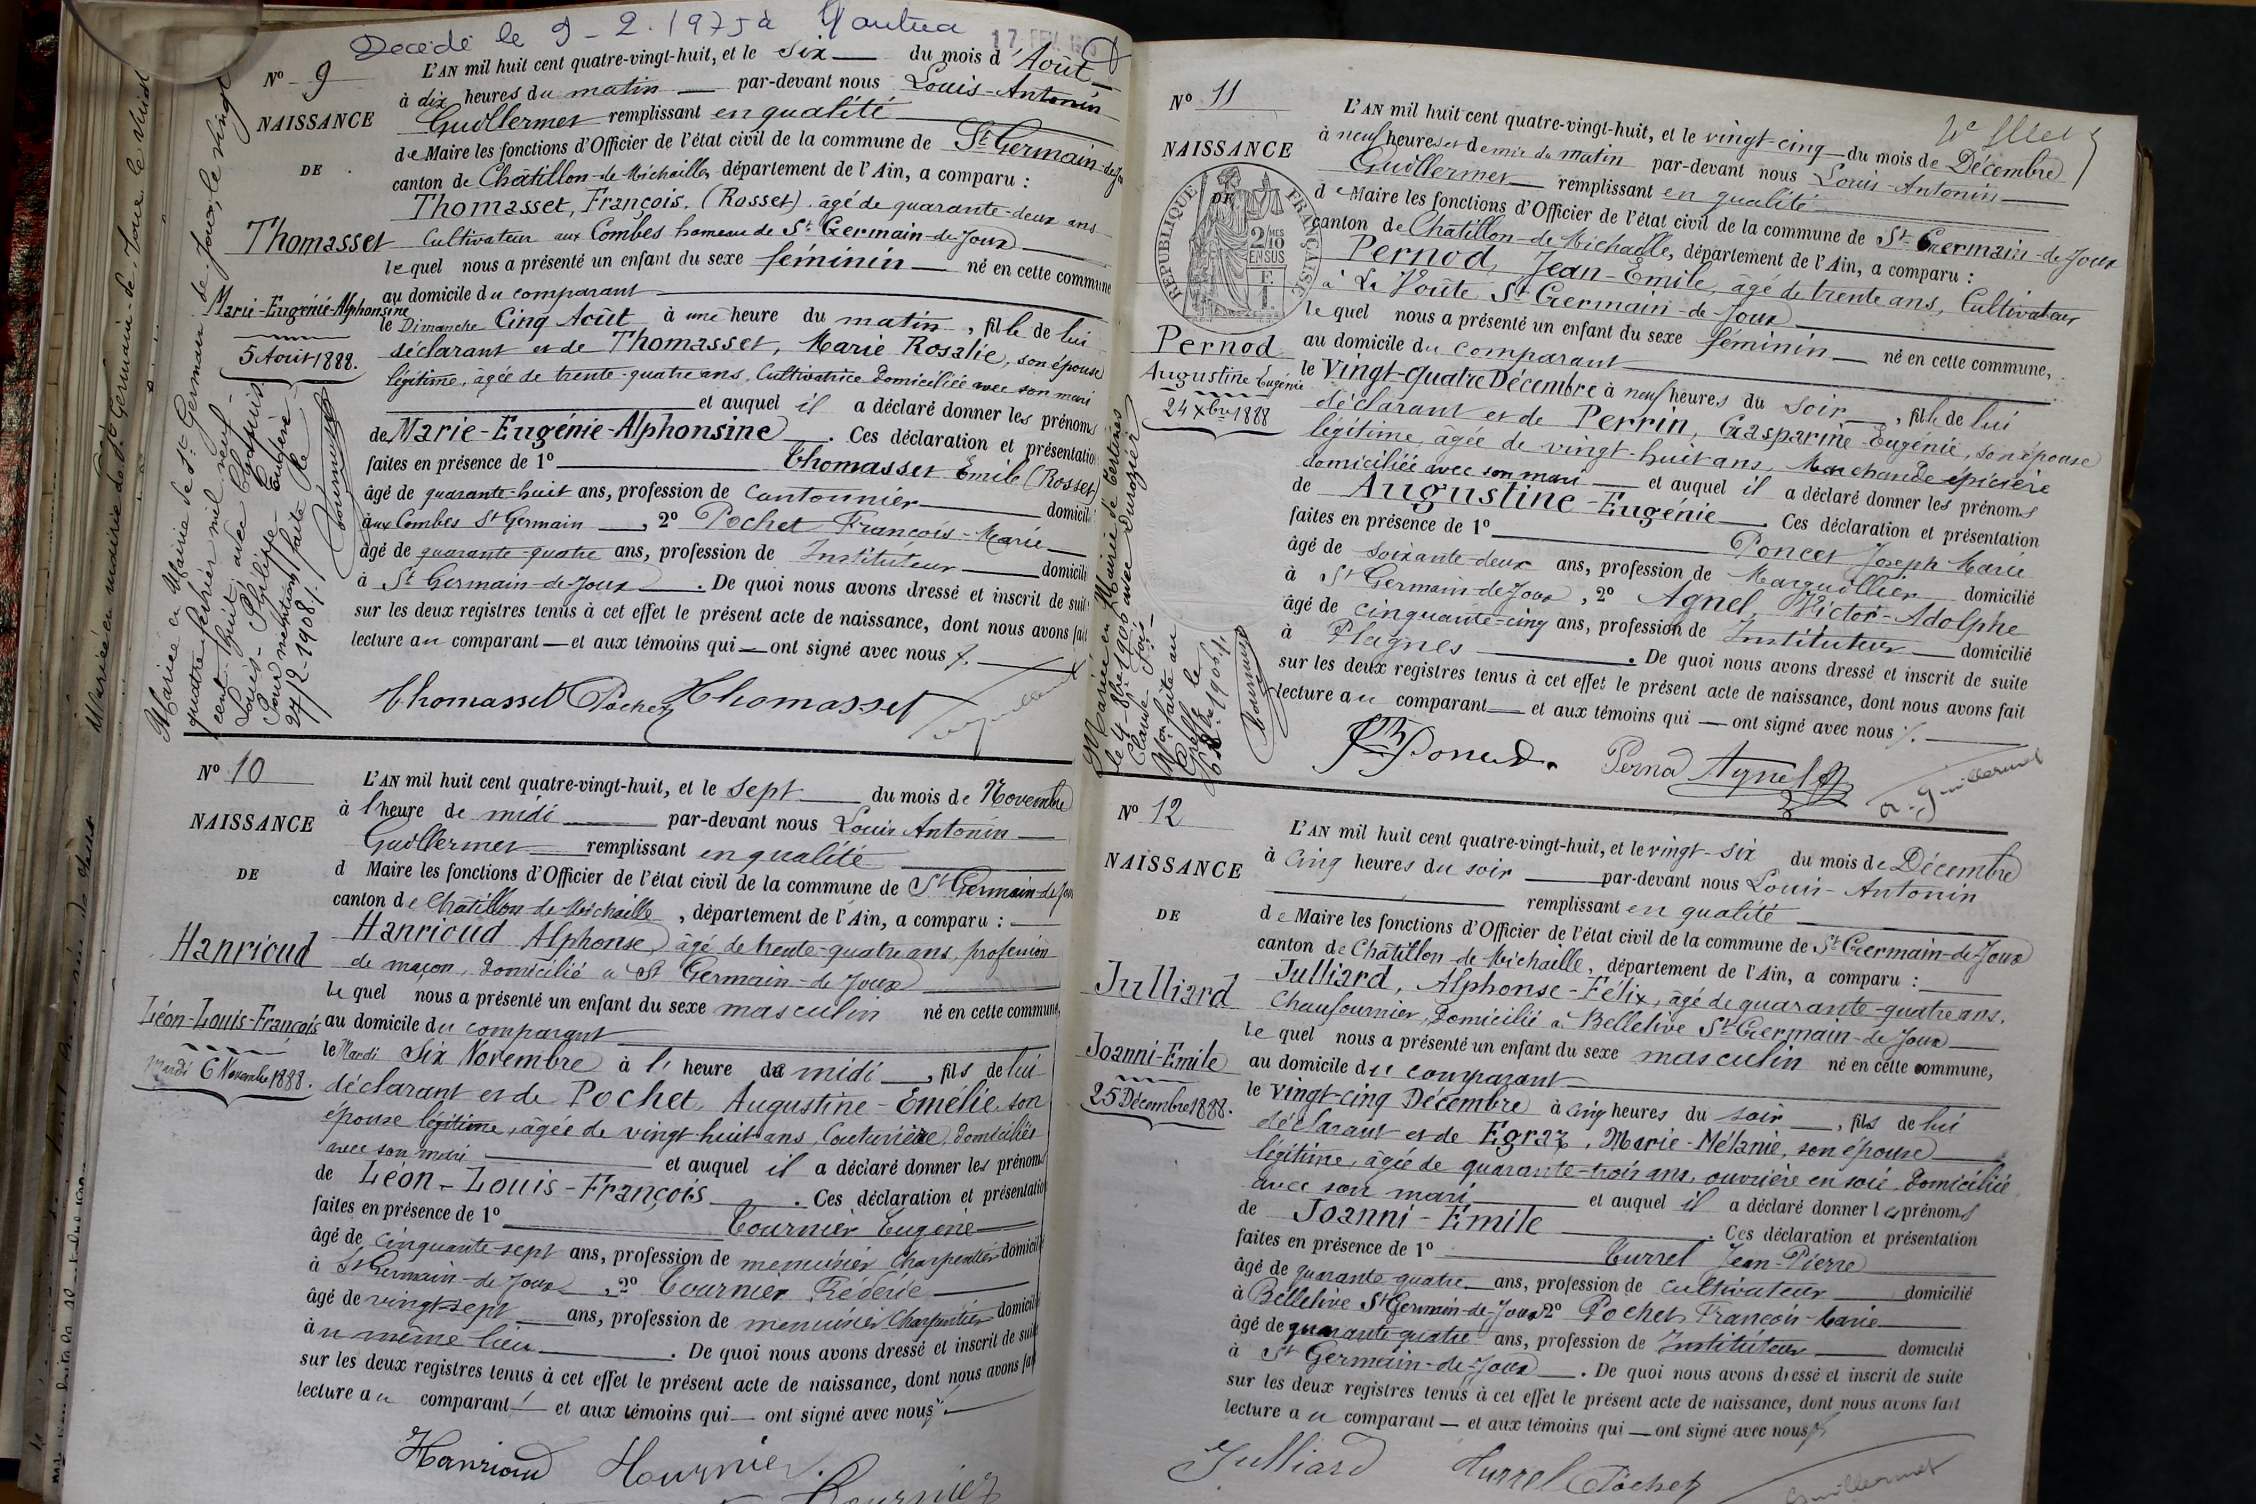 Decédé le 9-2.1975 à Nantua
17 FEV. 1975
N° 9
NAISSANCE
DE
Thomasset
Marie-Eugénie-Alphonsine
5 Août 1888.
L'AN mil huit cent quatre-vingt-huit, et le six du mois d'Août
à dix heures du matin par-devant nous Louis-Antonin
Guillermet remplissant en qualité
de Maire les fonctions d'Officier de l'état civil de la commune de St Germain-de-Joux
canton de Châtillon-de-Michailles département de l'Ain, a comparu :
Thomasset, François, (Rosset) âgé de quarante-deux ans
Cultivateur aux Combes hameau de St Germain-de-Joux
lequel nous a présenté un enfant du sexe féminin né en cette commune
au domicile du comparant
le Dimanche Cinq Août à une heure du matin, fille de lui
déclarant et de Thomasset, Marie Rosalie, son épouse
légitime, âgée de trente-quatre ans, Cultivatrice Domiciliée avec son mari
et auquel il a déclaré donner les prénoms
de Marie-Eugénie-Alphonsine. Ces déclaration et présentation
faites en présence de 1° Thomasset Emile (Rosset)
âgé de quarante-huit ans, profession de Cantonnier domicilié
aux Combes St Germain, 2° Pochet François-Marie
âgé de quarante-quatre ans, profession de Instituteur domicilié
à St Germain-de-Joux. De quoi nous avons dressé et inscrit de suite
sur les deux registres tenus à cet effet le présent acte de naissance, dont nous avons fait
lecture au comparant et aux témoins qui ont signé avec nous
Thomasset Pochet Thomasset
Mariée en Mairie de St Germain-de-Joux, le vingt
quatre février mil neuf
cent-huit avec
Louis-Philippe-Eugène
Pour mention faite le
27/2-1908
Tournier
N° 10
NAISSANCE
DE
Hanrioud
Léon-Louis-François
mardi 6 Novembre 1888.
L'AN mil huit cent quatre-vingt-huit, et le sept du mois de Novembre
à l'heure de midi par-devant nous Louis Antonin
Guillermet remplissant en qualité
d Maire les fonctions d'Officier de l'état civil de la commune de St Germain-de-Joux
canton de Châtillon-de-Michaille, département de l'Ain, a comparu :
Hanrioud Alphonse, âgé de trente-quatre ans, profession
de maçon, domicilié à St Germain-de-Joux
lequel nous a présenté un enfant du sexe masculin né en cette commune,
au domicile du comparant
le Mardi Six Novembre à l'heure de midi, fils de lui
déclarant et de Pochet, Augustine-Emélie, son
épouse légitime, âgée de vingt-huit ans, Couturière, domiciliée
avec son mari et auquel il a déclaré donner les prénoms
de Léon-Louis-François. Ces déclaration et présentation
faites en présence de 1° Tournier Eugène
âgé de cinquante-sept ans, profession de menuisier Charpentier domicilié
à St Germain-de-Joux, 2° Tournier Fédérie
âgé de vingt-sept ans, profession de menuisier Charpentier domicilié
au même lieu. De quoi nous avons dressé et inscrit de suite
sur les deux registres tenus à cet effet le présent acte de naissance, dont nous avons fait
lecture au comparant et aux témoins qui ont signé avec nous
Hanrioud Tournier
Tournier
N° 11
NAISSANCE
DE
RÉPUBLIQUE FRANÇAISE
2/10 MES EN SUS
Pernod
Augustine Eugénie
24 Xbre 1888
L'AN mil huit cent quatre-vingt-huit, et le vingt-cinq du mois de Décembre
à neuf heures et demie du matin par-devant nous Louis-Antonin
Guillermet remplissant en qualité
de Maire les fonctions d'Officier de l'état civil de la commune de St-Germain-de-Joux
canton de Châtillon-de-Michaille, département de l'Ain, a comparu :
Pernod, Jean-Emile, âgé de trente ans, Cultivateur
à La Voûte St Germain-de-Joux
lequel nous a présenté un enfant du sexe féminin né en cette commune,
au domicile du comparant
le Vingt-quatre Décembre à neuf heures du soir, fille de lui
déclarant et de Perrin, Gasparine-Eugénie, son épouse
légitime, âgée de vingt-huit ans, Marchande épicière
domiciliée avec son mari et auquel il a déclaré donner les prénoms
de Augustine-Eugénie. Ces déclaration et présentation
faites en présence de 1° Poncet Joseph Marie
âgé de soixante-deux ans, profession de Marguillier domicilié
à St Germain-de-Joux, 2° Agnel, Victor-Adolphe
âgé de cinquante-cinq ans, profession de Instituteur domicilié
à Plagnes. De quoi nous avons dressé et inscrit de suite
sur les deux registres tenus à cet effet le présent acte de naissance, dont nous avons fait
lecture au comparant et aux témoins qui ont signé avec nous
Poncet. Pernod Agnel
A. Guillermet
Mariée en Mairie de
le 4-8bre 1906 avec Durozier
Claude-
Mon faite au
Greffe le
Tournier
N° 12
NAISSANCE
DE
Julliard
Joanni-Emile
25 Décembre 1888.
L'AN mil huit cent quatre-vingt-huit, et le vingt-six du mois de Décembre
à Cinq heures du soir par-devant nous Louis-Antonin
remplissant en qualité
de Maire les fonctions d'Officier de l'état civil de la commune de St Germain-de-Joux
canton de Châtillon-de-Michaille, département de l'Ain, a comparu :
Julliard, Alphonse-Félix, âgé de quarante-quatre ans,
Chaufournier, Domicilié à Bellelive St Germain-de-Joux
lequel nous a présenté un enfant du sexe masculin né en cette commune,
au domicile du comparant
le Vingt-cinq Décembre à cinq heures du soir, fils de lui
déclarant et de Egraz, Marie-Mélanie, son épouse
légitime, âgée de quarante-trois ans, ouvrière en soie, domiciliée
avec son mari et auquel il a déclaré donner les prénoms
de Joanni-Emile. Ces déclaration et présentation
faites en présence de 1° Turrel Jean-Pierre
âgé de quarante quatre ans, profession de cultivateur domicilié
à Bellelive St Germain-de-Joux 2° Pochet François-Marie
âgé de quarante-quatre ans, profession de Instituteur domicilié
à St Germain-de-Joux. De quoi nous avons dressé et inscrit de suite
sur les deux registres tenus à cet effet le présent acte de naissance, dont nous avons fait
lecture au comparant et aux témoins qui ont signé avec nous
Julliard Turrel Pochet Guillermet